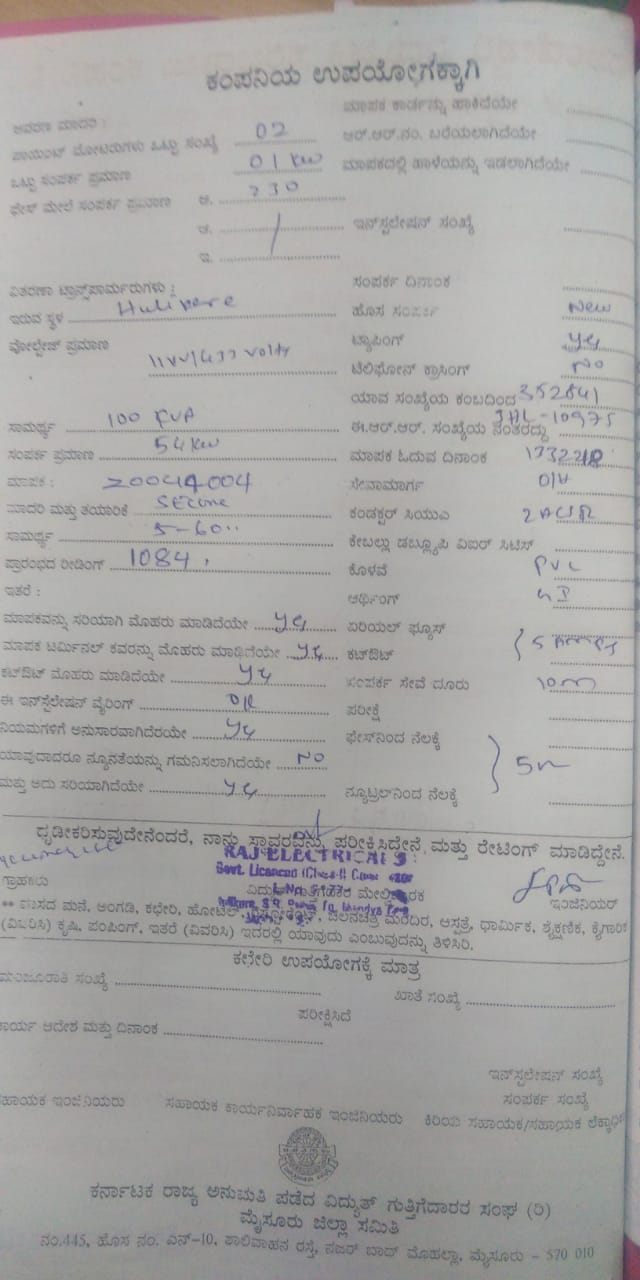 ಕಂಪನಿಯ ಉಪಯೋಗಕ್ಕಾಗಿ
ಆವರಣ ಮಾದರಿ :
ಮಾಪಕ ಕಾರ್ಡನ್ನು ಹಾಕಿದೆಯೇ
ಪಾಯಿಂಟ್ ಮೋಟರುಗಳು ಒಟ್ಟು ಸಂಖ್ಯೆ 02
ಆರ್.ಆರ್.ನಂ. ಬರೆಯಲಾಗಿದೆಯೇ
ಒಟ್ಟು ಸಂಪರ್ಕ ಪ್ರಮಾಣ 01 KW
ಮಾಪಕದಲ್ಲಿ ಹಾಳೆಯನ್ನು ಇಡಲಾಗಿದೆಯೇ
ಫೇಸ್ ಮೇಲೆ ಸಂಪರ್ಕ ಪ್ರಮಾಣ ಅ. 230
ಇನ್‌ಸ್ಟಲೇಷನ್ ಸಂಖ್ಯೆ
ಇ.
ವಿತರಣಾ ಟ್ರಾನ್ಸ್‌ಫಾರ್ಮರುಗಳು :
ಸಂಪರ್ಕ ದಿನಾಂಕ
ಇರುವ ಸ್ಥಳ
ಹೊಸ ಸಂಪರ್ಕ New
ವೋಲ್ಟೇಜ್ ಪ್ರಮಾಣ
ಟ್ಯಾಪಿಂಗ್ yes
ಟೆಲಿಫೋನ್ ಕ್ರಾಸಿಂಗ್ No
ಯಾವ ಸಂಖ್ಯೆಯ ಕಂಬದಿಂದ 352841
ಸಾಮರ್ಥ್ಯ 100 KVA
ಈ.ಆರ್.ಆರ್. ಸಂಖ್ಯೆಯ ನಂತರದ್ದು JHL-10975
ಸಂಪರ್ಕ ಪ್ರಮಾಣ 54 KW
ಮಾಪಕ ಓದುವ ದಿನಾಂಕ
ಮಾಪಕ : 20044004
ಸೇವಾಮಾರ್ಗ O/H
ಮಾದರಿ ಮತ್ತು ತಯಾರಿಕೆ
ಕಂಡಕ್ಟರ್ ಸಿಯುಎ 2 ACSR
ಸಾಮರ್ಥ್ಯ 5-60
ಕೇಬಲ್ಲು ಡಬ್ಲ್ಯೂಪಿ ವಿಐಆರ್ ಸಿಟಿಸ್
ಪ್ರಾರಂಭದ ರೀಡಿಂಗ್ 1084
ಕೊಳವೆ PVC
ಇತರೆ :
ಅರ್ಥಿಂಗ್ GI
ಮಾಪಕವನ್ನು ಸರಿಯಾಗಿ ಮೊಹರು ಮಾಡಿದೆಯೇ yes
ಏರಿಯಲ್ ಫ್ಯೂಸ್
ಮಾಪಕ ಟರ್ಮಿನಲ್ ಕವರನ್ನು ಮೊಹರು ಮಾಡಿದೆಯೇ yes
ಕಟ್‌ಔಟ್ 5 Amps
ಕಟ್‌ಔಟ್ ಮೊಹರು ಮಾಡಿದೆಯೇ yes
ಸಂಪರ್ಕ ಸೇವೆ ದೂರು 10m
ಈ ಇನ್‌ಸ್ಟಲೇಷನ್ ವೈರಿಂಗ್ OK
ಪರೀಕ್ಷೆ
ನಿಯಮಗಳಿಗೆ ಅನುಸಾರವಾಗಿದೆಯೇ yes
ಫೇಸ್‌ನಿಂದ ನೆಲಕ್ಕೆ
ಯಾವುದಾದರೂ ನ್ಯೂನತೆಯನ್ನು ಗಮನಿಸಲಾಗಿದೆಯೇ No
ಮತ್ತು ಅದು ಸರಿಯಾಗಿದೆಯೇ yes
ನ್ಯೂಟ್ರಲ್‌ನಿಂದ ನೆಲಕ್ಕೆ
ಧೃಡೀಕರಿಸುವುದೇನೆಂದರೆ, ನಾನು ಸ್ಥಾವರವನ್ನು ಪರೀಕ್ಷಿಸಿದ್ದೇನೆ ಮತ್ತು ರೇಟಿಂಗ್ ಮಾಡಿದ್ದೇನೆ.
RAJ ELECTRICALS
ಗ್ರಾಹಕರು
ಇಂಜಿನಿಯರ್
(ವಿವರಿಸಿ) ಕೃಷಿ, ಪಂಪಿಂಗ್, ಇತರೆ (ವಿವರಿಸಿ) ಇದರಲ್ಲಿ ಯಾವುದು ಎಂಬುವುದನ್ನು ತಿಳಿಸಿರಿ.
ಕಛೇರಿ ಉಪಯೋಗಕ್ಕೆ ಮಾತ್ರ
ಮಂಜೂರಾತಿ ಸಂಖ್ಯೆ
ಖಾತೆ ಸಂಖ್ಯೆ
ಪರೀಕ್ಷಿಸಿದೆ
ಕಾರ್ಯ ಆದೇಶ ಮತ್ತು ದಿನಾಂಕ
ಇನ್‌ಸ್ಟಲೇಷನ್ ಸಂಖ್ಯೆ
ಸಂಪರ್ಕ ಸಂಖ್ಯೆ
ಸಹಾಯಕ ಇಂಜಿನಿಯರು ಸಹಾಯಕ ಕಾರ್ಯನಿರ್ವಾಹಕ ಇಂಜಿನಿಯರು ಕಿರಿಯ ಸಹಾಯಕ/ಸಹಾಯಕ
ಕರ್ನಾಟಕ ರಾಜ್ಯ ಅನುಮತಿ ಪಡೆದ ವಿದ್ಯುತ್ ಗುತ್ತಿಗೆದಾರರ ಸಂಘ (ರಿ)
ಮೈಸೂರು ಜಿಲ್ಲಾ ಸಮಿತಿ
ನಂ.445, ಹೊಸ ನಂ. ಎನ್-10, ಶಾಲಿವಾಹನ ರಸ್ತೆ, ನಜರ್ ಬಾದ್ ಮೊಹಲ್ಲಾ, ಮೈಸೂರು - 570 010